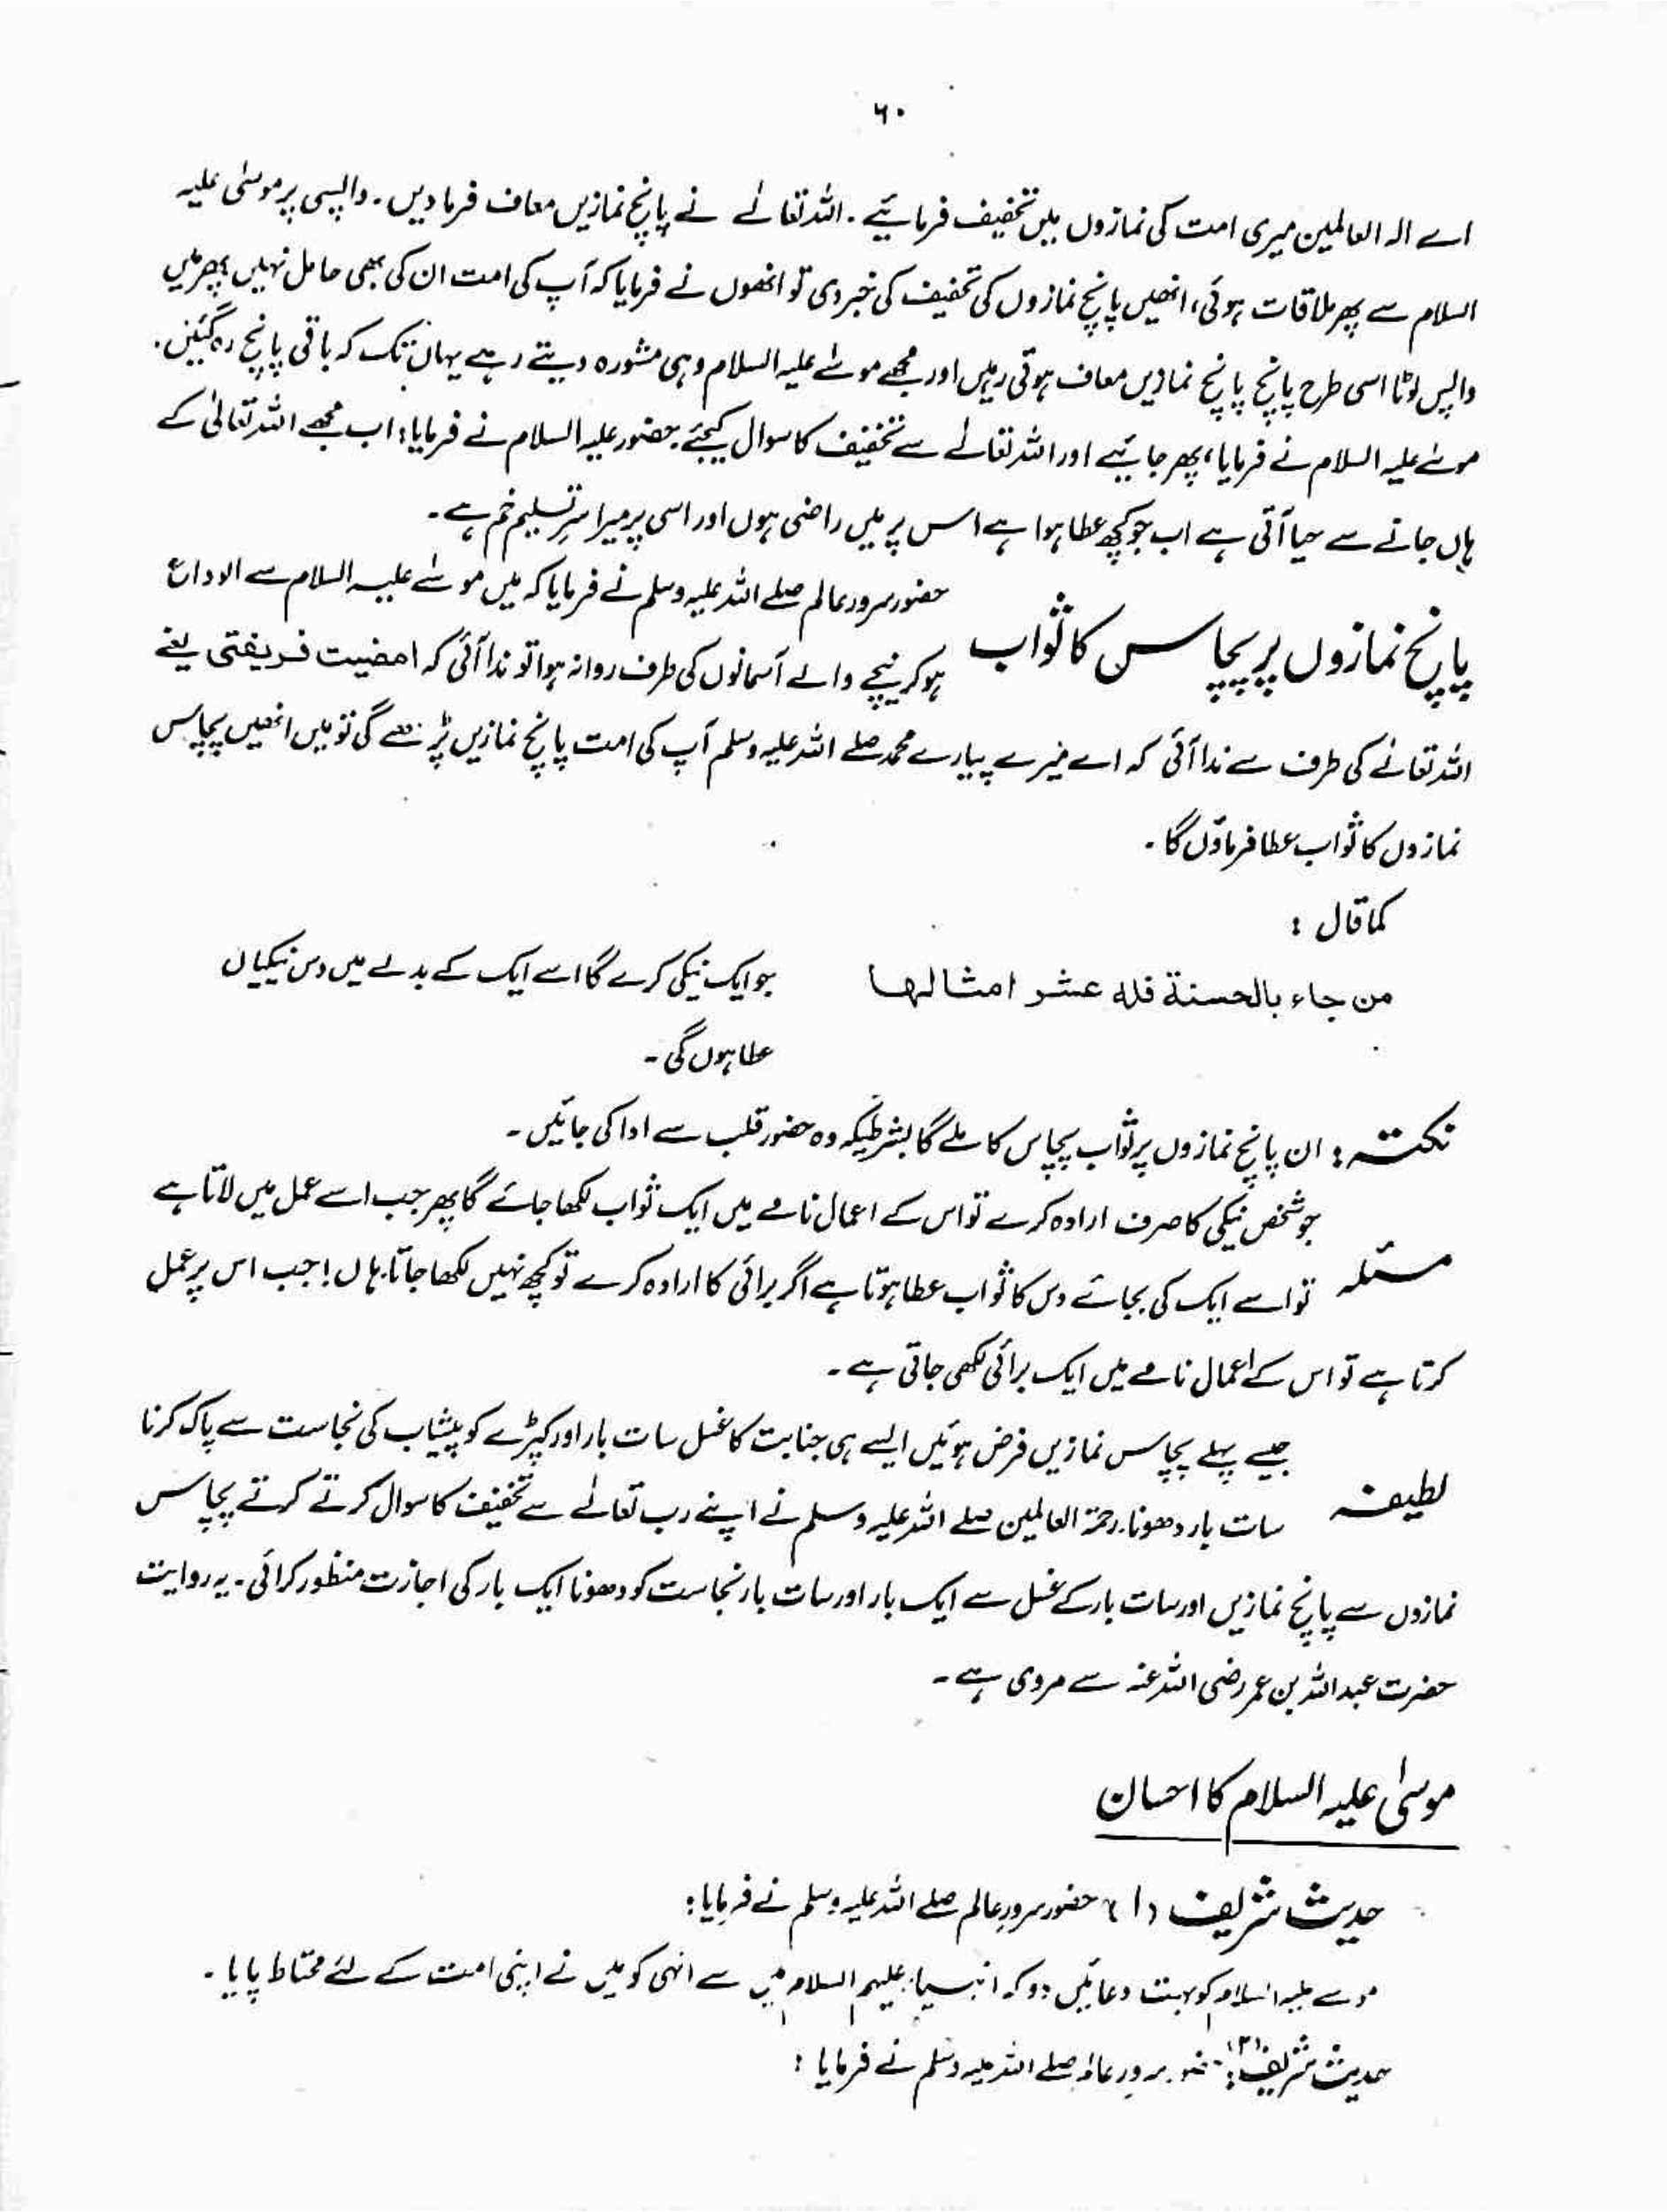 ۶۰
اے الہ العالمین میری امت کی نمازوں میں تخفیف فرمائیے ۔ اللہ تعالےٰ نے پانچ نمازیں معاف فرما دیں ۔ واپسی پر موسٰی علیہ
السلام سے پھر ملاقات ہوئی ، انھیں پانچ نمازوں کی تخفیف کی خبر دی تو انھوں نے فرمایا کہ آپ کی امت ان کی بھی حامل نہیں پھر میں
واپس لوٹا اسی طرح پانچ پانچ نمازیں معاف ہوتی رہیں اور مجھے موسےٰ علیہ السلام وہی مشورہ دیتے رہے یہاں تک کہ باقی پانچ رہ گئیں ۔
موسےٰ علیہ السلام نے فرمایا ، پھر جائیے اور اللہ تعالےٰ سے تخفیف کا سوال کیجئے ۔ حضور علیہ السلام نے فرمایا : اب مجھے اللہ تعالیٰ کے
ہاں جانے سے حیا آتی ہے اب جو کچھ عطا ہوا ہے اس پر میں راضی ہوں اور اسی پر میرا سرِ تسلیم خم ہے ۔
پانچ نمازوں پر پچاس کا ثواب
حضور سرور عالم صلے اللہ علیہ وسلم نے فرمایا کہ میں موسےٰ علیہ السلام سے الوداع
ہو کر نیچے والے آسمانوں کی طرف روانہ ہوا تو ندا آئی کہ امضیت فریفتی یعنے
اللہ تعالےٰ کی طرف سے ندا آئی کہ اے میرے پیارے محمد صلے اللہ علیہ وسلم آپ کی امت پانچ نمازیں پڑھے گی تو میں انھیں پچاس
نمازوں کا ثواب عطا فرماؤں گا ۔
کما قال :
من جاء بالحسنة فله عشر امثالها
جو ایک نیکی کرے گا اسے ایک کے بدلے میں دس نیکیاں
عطا ہوں گی ۔
نکتہ : ان پانچ نمازوں پر ثواب پچاس کا ملے گا بشرطیکہ وہ حضور قلب سے ادا کی جائیں ۔
مسئلہ
جو شخص نیکی کا صرف ارادہ کرے تو اس کے اعمال نامے میں ایک ثواب لکھا جائے گا پھر جب اسے عمل میں لاتا ہے
تو اسے ایک کی بجائے دس کا ثواب عطا ہوتا ہے اگر برائی کا ارادہ کرے تو کچھ نہیں لکھا جاتا ۔ ہاں ! جب اس پر عمل
کرتا ہے تو اس کے اعمال نامے میں ایک برائی لکھی جاتی ہے ۔
لطیفہ
جیسے پہلے پچاس نمازیں فرض ہوئیں ایسے ہی جنابت کا غسل سات بار اور کپڑے کو پیشاب کی نجاست سے پاک کرنا
سات بار دھونا ۔ رحمۃ العالمین صلے اللہ علیہ وسلم نے اپنے رب تعالےٰ سے تخفیف کا سوال کرتے کرتے پچاس
نمازوں سے پانچ نمازیں اور سات بار کے غسل سے ایک بار اور سات بار نجاست کو دھونا ایک بار کی اجازت منظور کرائی ۔ یہ روایت
حضرت عبداللہ بن عمر رضی اللہ عنہ سے مروی ہے ۔
موسیٰ علیہ السلام کا احسان
حدیث شریف (۱) حضور سرورِ عالم صلے اللہ علیہ وسلم نے فرمایا :
موسے علیہ السلام کو بہت دعائیں دو کہ انبیاء علیہم السلام میں سے انہی کو میں نے اپنی امت کے لئے محتاط پایا ۔
حدیث شریف : حضور سرور عالم صلے اللہ علیہ وسلم نے فرمایا :